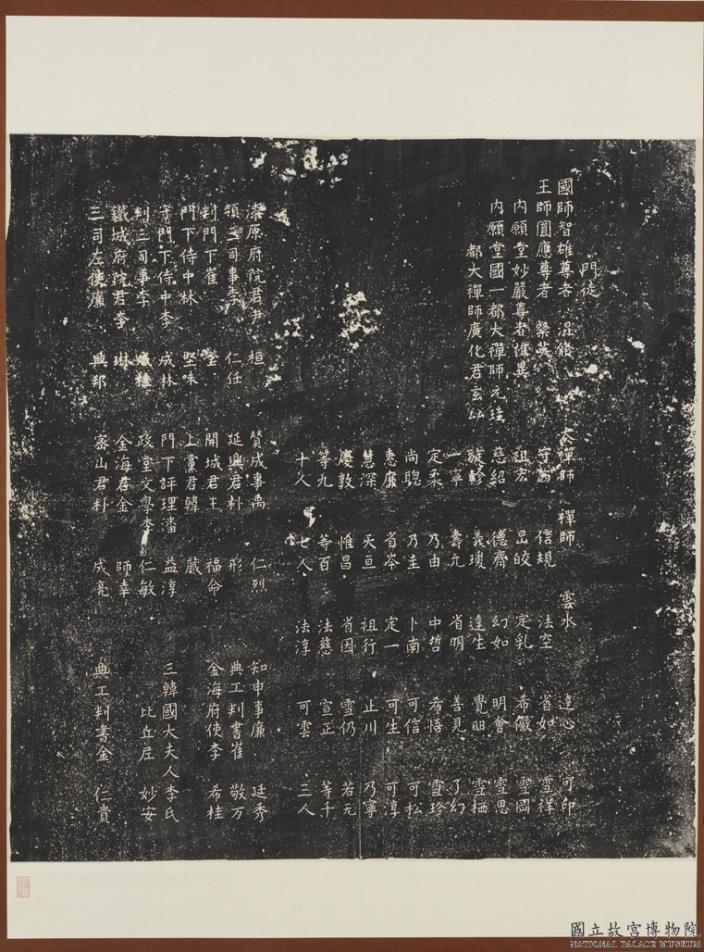 門徒
國師智雄尊者 混修 大禪師 禪師 雲水 達心 可印
王師圓應尊者 粲英 守 信規 法空 省如 雪祥
内願堂妙嚴尊者 祖宏 旵皎 定乳 希儼 雪岡
内願堂國一都大禪師元珪 慈紹 儀齊 幻如 明會 雪思
都大禪師廣化君玄 義瓊 達生 覺明 雪栖
一寧 壽允 省明 善見 了幻
定柔 乃由 中哲 希悟 雪珍
尚聰 乃圭 卜南 可信 可松
惠廉 省岑 定一 可生 可淳
慧深 天亘 祖行 止川 乃寧
慶敦 惟昌 省因 雪仍 若元
等九 等百 法慈 宣正 等千
十人 七人 法淳 可雲 三人
漆原府院君尹 桓 贊成事禹 仁烈 知申事廉 廷秀
領三司事李 仁任 延興君朴 形 典工判書崔 敬万
判門下崔 瑩 開城君王 福命 金海府使李 希桂
門下侍中林 堅味 上黨君韓 蕆
守門下侍中李 成林 門下評理潘 益淳 三韓國大夫人李氏
判三司事李 成桂 政堂文學李 仁敏 比丘尼 妙安
鐵城府院君李 琳 金海君金 師幸
三司左使廉 興邦 密山君朴 成亮 典工判書金 仁貴
國立故宮博物院
NATIONAL PALACE MUSEUM